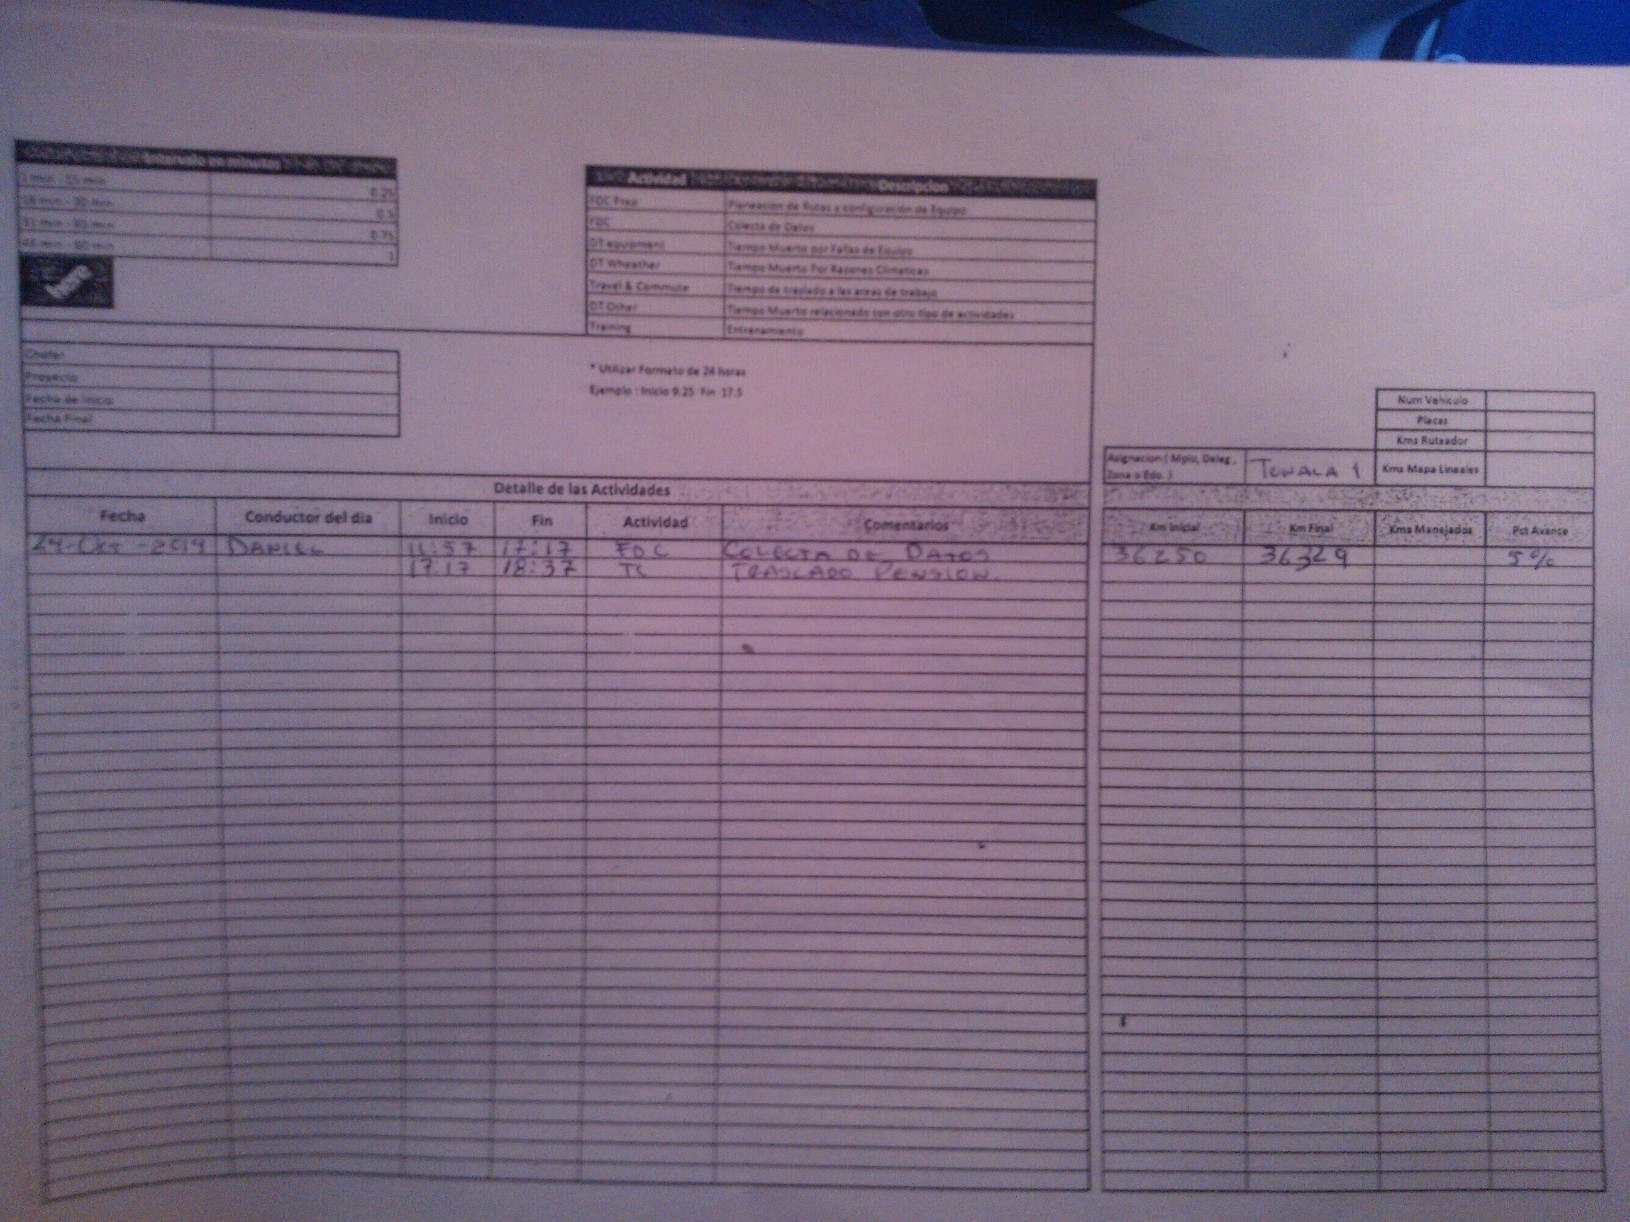 Intervalo en minutos
1 min - 15 min 0.25
16 min - 30 min 0.5
31 min - 45 min 0.75
46 min - 60 min 1
here
Actividad Descripcion
FDC Prep Planeacion de Rutas y configuración de Equipo
FDC Colecta de Datos
DT equipment Tiempo Muerto por Fallas de Equipo
DT Wheather Tiempo Muerto Por Razones Climaticas
Travel & Commute Tiempo de traslado a las areas de trabajo
DT Other Tiempo Muerto relacionado con otro tipo de actividades
Training Entrenamiento
Chofer
Proyecto
Fecha de Inicio
Fecha Final
* Utilizar Formato de 24 horas
Ejemplo : Inicio 9.25 Fin 17.5
Num Vehiculo
Placas
Kms Ruteador
Kms Mapa Lineales
Asignacion ( Mpio, Deleg,
Zona o Edo. )
TONALA 1
Detalle de las Actividades
Fecha Conductor del dia Inicio Fin Actividad Comentarios Km Inicial Km Final Kms Manejados Pct Avance
24-Oct-2014 DANIEL 11:57 17:17 FDC COLECTA DE DATOS 36250 36329 5%
17:17 18:37 TC TRASLADO PENSION.